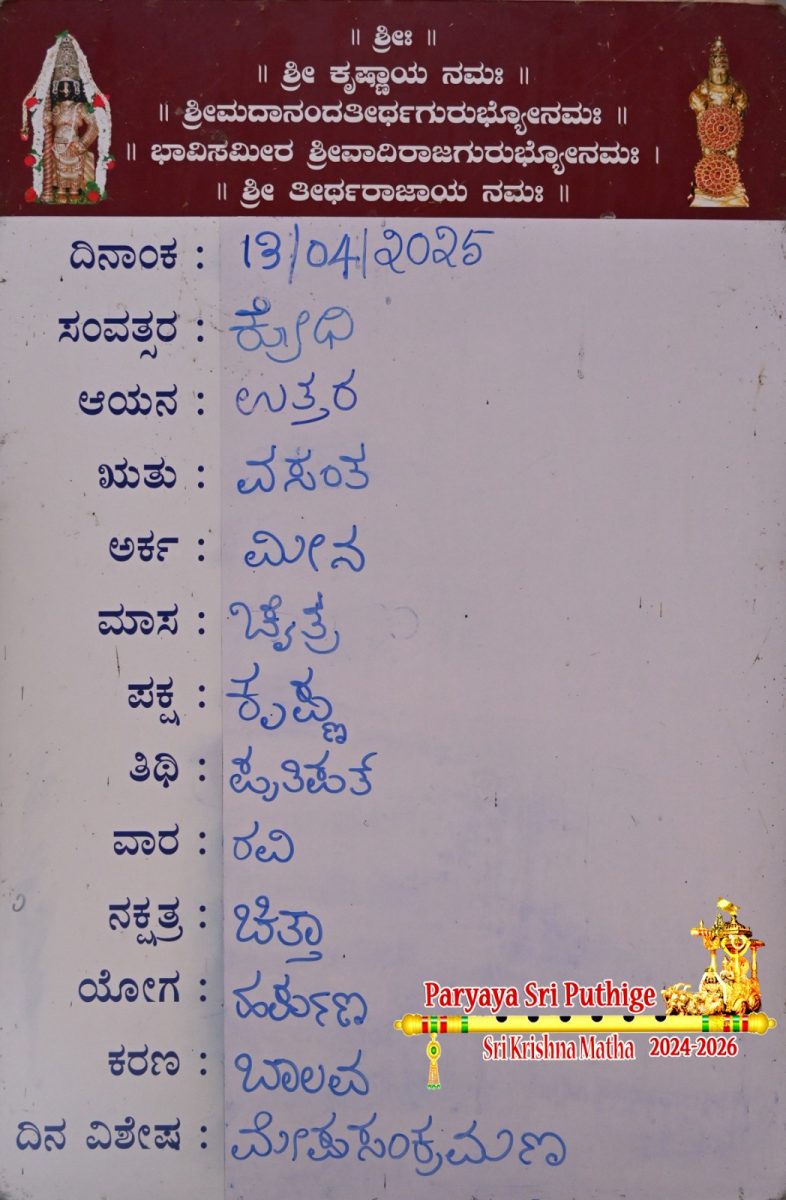 ॥ ಶ್ರೀಃ ॥
॥ ಶ್ರೀ ಕೃಷ್ಣಾಯ ನಮಃ ॥
॥ ಶ್ರೀಮದಾನಂದತೀರ್ಥಗುರುಭ್ಯೋನಮಃ ॥
॥ ಭಾವಿಸಮೀರ ಶ್ರೀವಾದಿರಾಜಗುರುಭ್ಯೋನಮಃ ।
॥ ಶ್ರೀ ತೀರ್ಥರಾಜಾಯ ನಮಃ ॥
ದಿನಾಂಕ : 13/04/೨025
ಸಂವತ್ಸರ : ಕ್ರೋಧಿ
ಆಯನ : ಉತ್ತರ
ಋತು : ವಸಂತ
ಅರ್ಕ : ಮೀನ
ಮಾಸ : ಚೈತ್ರ
ಪಕ್ಷ : ಕೃಷ್ಣ
ತಿಥಿ : ಪ್ರತಿಪತೆ
ವಾರ : ರವಿ
ನಕ್ಷತ್ರ : ಚಿತ್ತಾ
ಯೋಗ : ಹರ್ಷಣ
ಕರಣ : ಬಾಲವ
ದಿನ ವಿಶೇಷ : ಮೇಷಸಂಕ್ರಮಣ
Paryaya Sri Puthige
Sri Krishna Matha 2024-2026